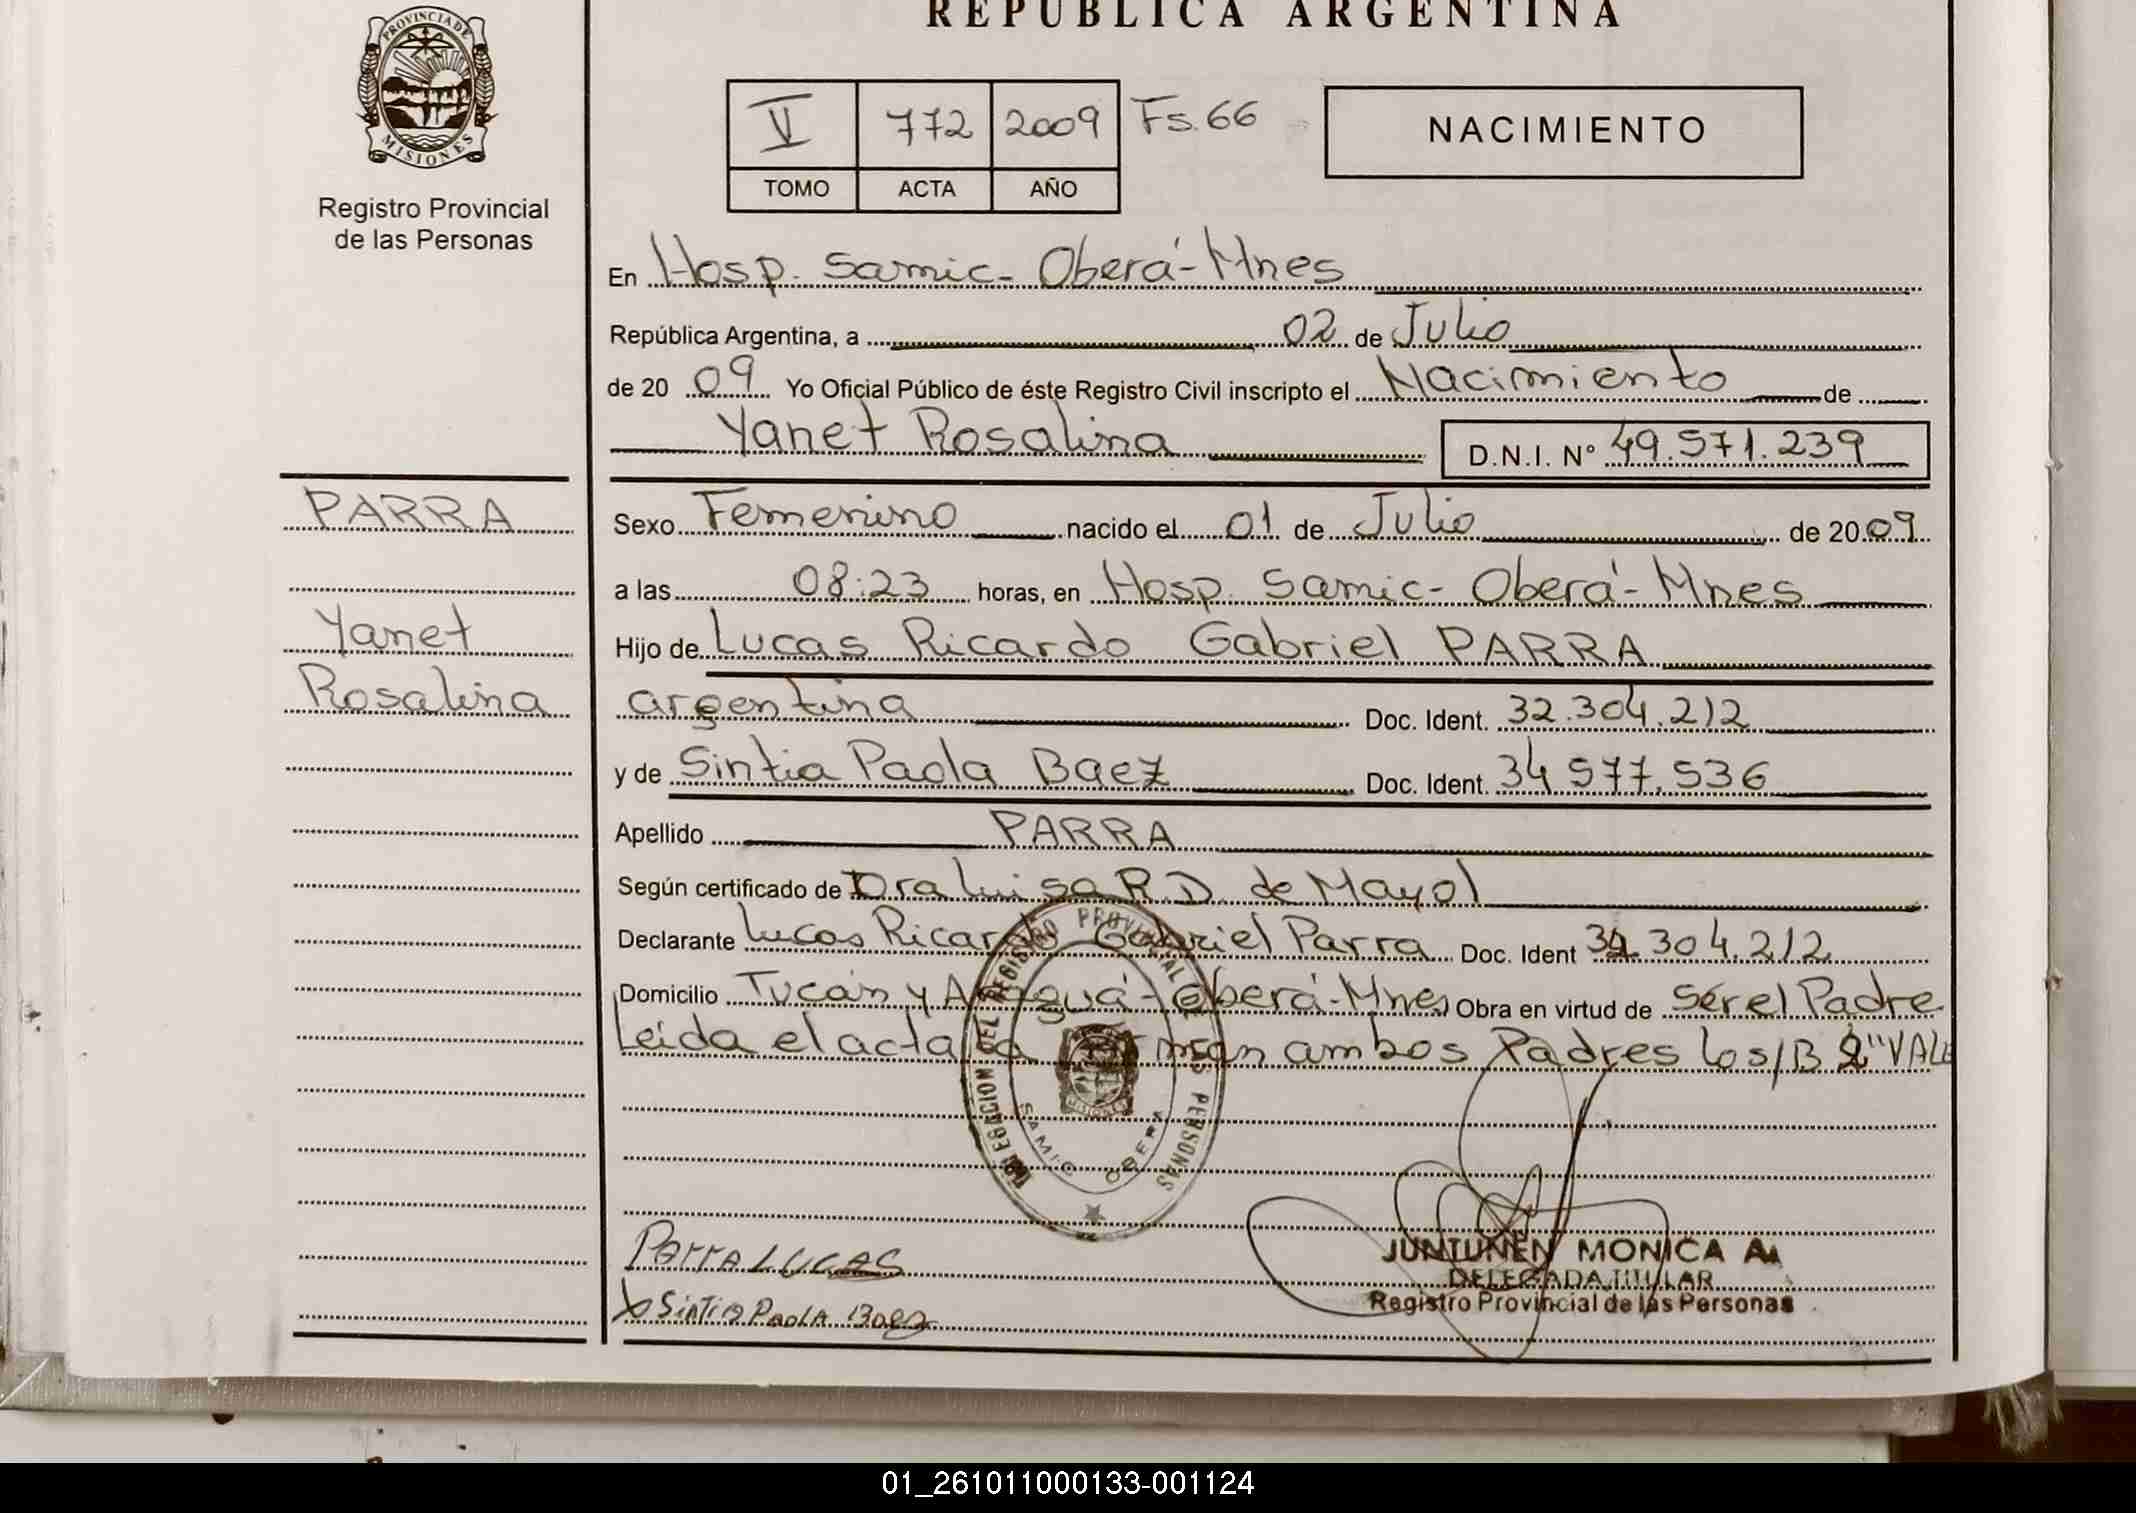 REPUBLICA ARGENTINA
PROVINCIA DE
MISIONES
Registro Provincial
de las Personas
V 772 2009 Fs. 66
TOMO ACTA AÑO
NACIMIENTO
En Hosp. Samic- Oberá-Mnes
República Argentina, a 02 de Julio
de 20 09 Yo Oficial Público de éste Registro Civil inscripto el Nacimiento de
Yanet Rosalina D.N.I. Nº 49.571.239
PARRA
Yanet
Rosalina
Sexo Femenino nacido el 01 de Julio de 20 09
a las 08:23 horas, en Hosp. Samic- Oberá- Mnes
Hijo de Lucas Ricardo Gabriel PARRA
argentina Doc. Ident. 32.304.212
y de Sintia Paola Baez Doc. Ident. 34 577.536
Apellido PARRA
Según certificado de Dra Luisa R.D. de Mayol
Declarante Lucas Ricardo Gabriel Parra Doc. Ident 32 304.212
Domicilio Tucán y Oberá-Mnes Obra en virtud de ser el Padre
Leida el acta la Firman ambos Padres los/B 2 "VALE
DELEGACION DEL REGISTRO PROVINCIAL PERSONAS
SAMIC OBERA
Parra LUCAS
Sintia Paola Baez
JUNTUNEN MONICA A.
DELEGADA TITULAR
Registro Provincial de las Personas
01_261011000133-001124